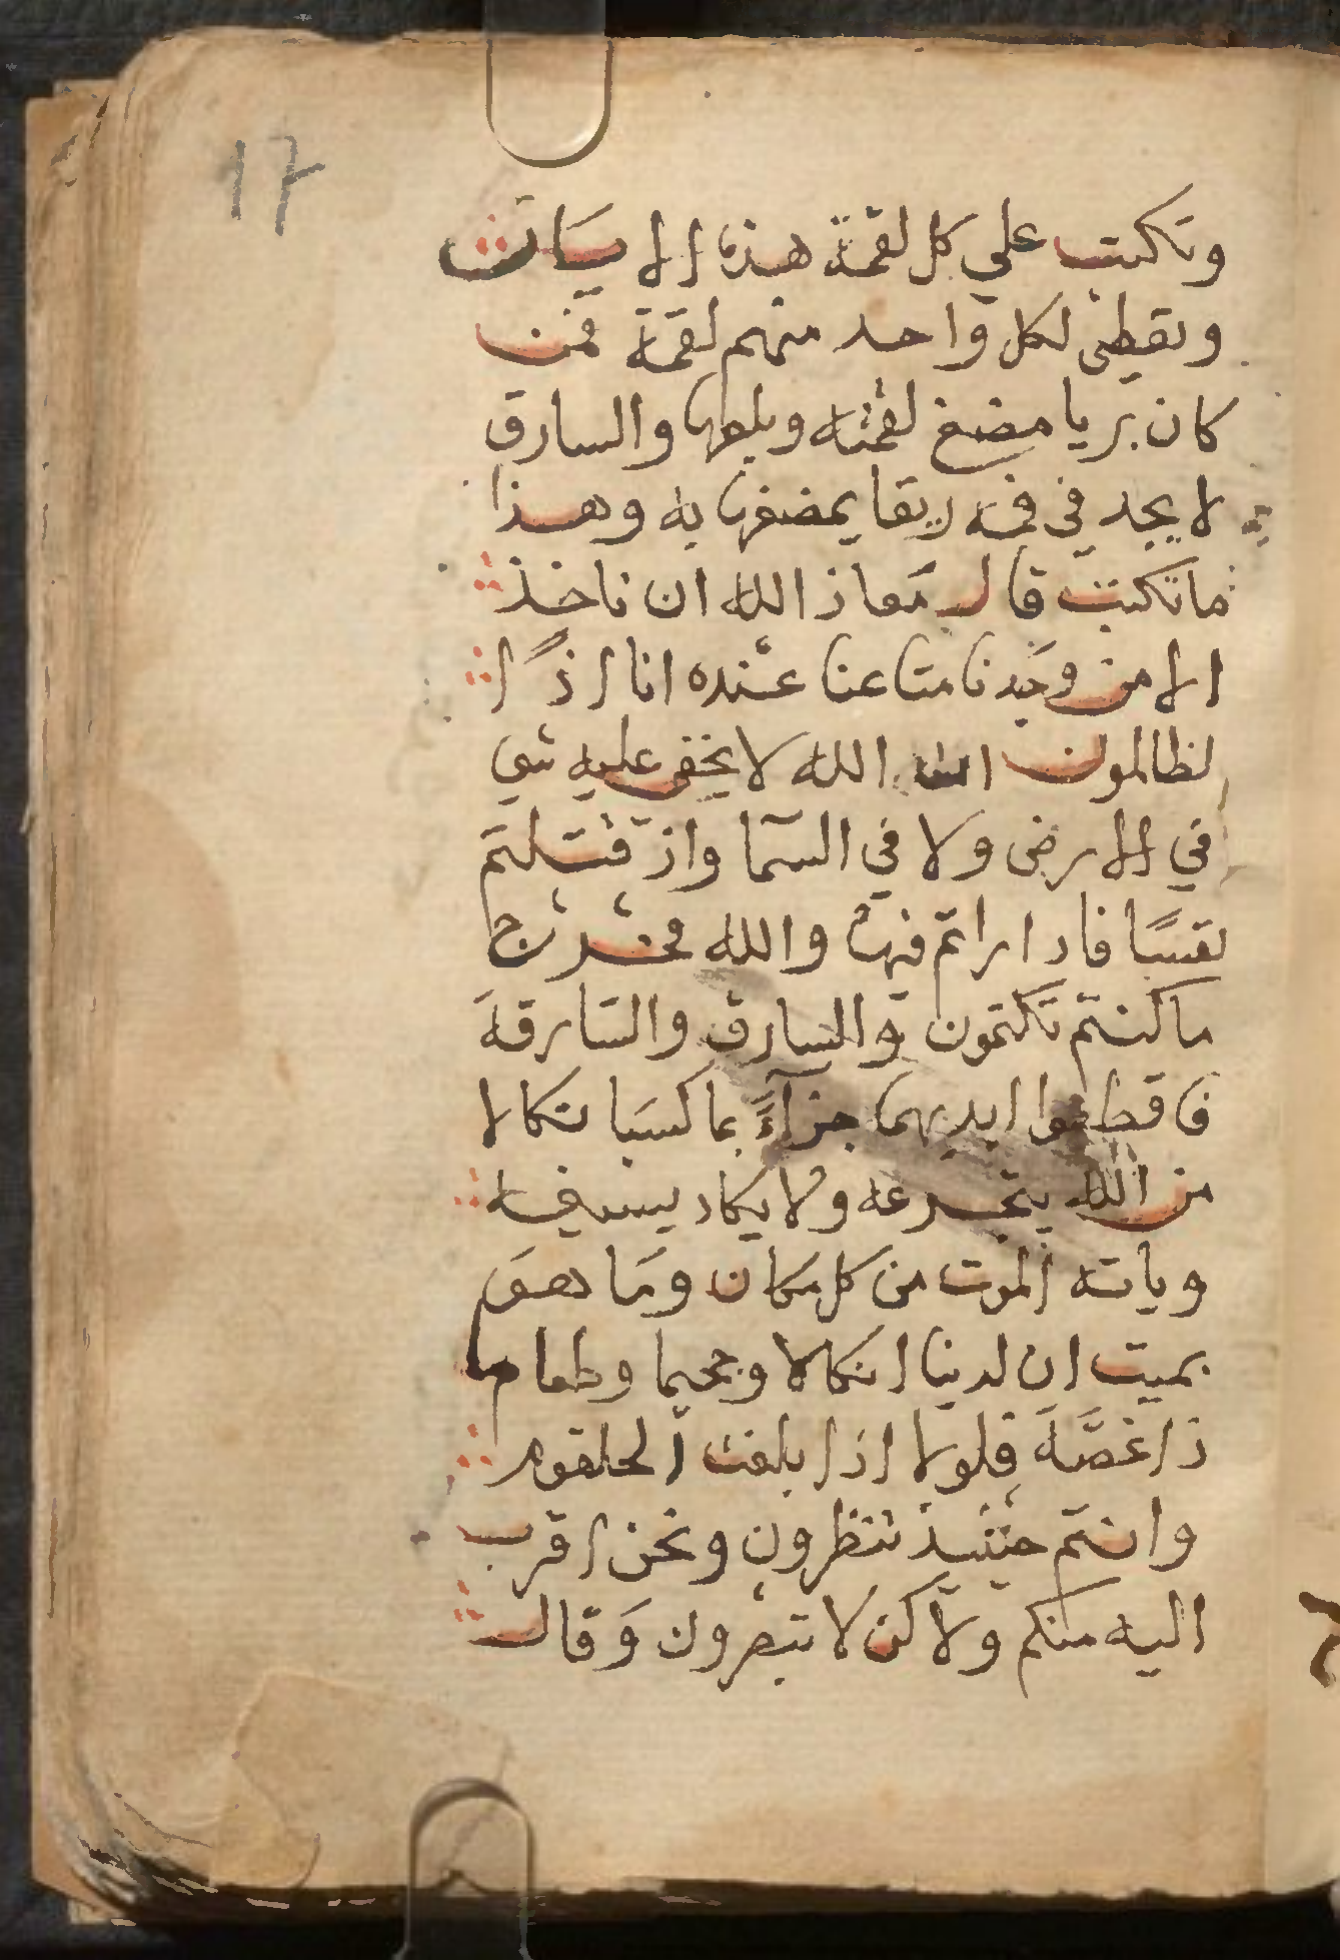 17
وتكتب علي كل لقمة هذه الايات
وتعطى لكل واحد منهم لقمة فمن
كان بريا مضغ لقمته وبلعها والسارق
لا يجد في فمه ريقا يمضغها به وهذا
ما تكتب قال معاذ الله ان ناخذ
الا من وجدنا متاعنا عنده انا اذًا
لظالمون الله لا يخفى عليه شي
في الارض ولا في السما واذ قتلتم
نفسًا فادارأتم فيها والله مخرج
ما كنتم تكتمون والسارق والسارقة
فاقطعوا ايديهما جزآءً بما كسبا نكالا
من الله يتجرعه ولا يكاد يسيغه
وياته الموت من كل مكان وما هو
بميت ان لدينا انكالا وجحيما وطعاما
ذا غصّة فلولا اذا بلغت الحلقوم
وانتم حينيذ تنظرون ونحن اقرب
اليه منكم ولاكن لا تبصرون وقال